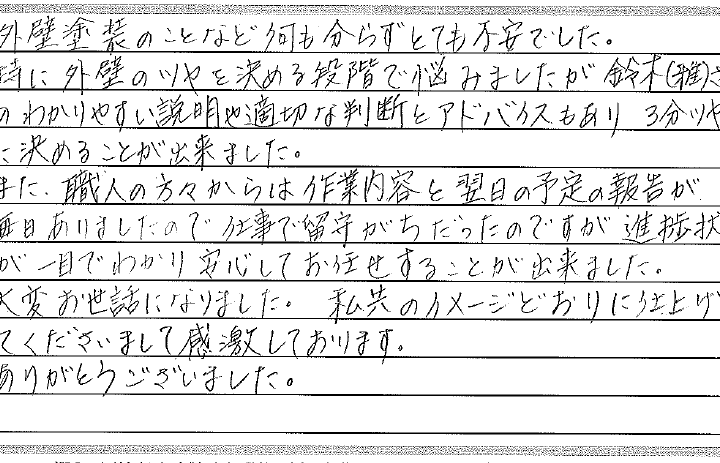 外壁塗装のことなど何も分らずとても不安でした。
特に外壁のツヤを決める段階で悩みましたが鈴木(雅)さ
のわかりやすい説明や適切な判断とアドバイスもあり 3分ツヤ
に決めることが出来ました。
また、職人の方々からは作業内容と翌日の予定の報告が
毎日ありましたので仕事で留守がちだったのですが進捗状
が一目でわかり安心してお任せすることが出来ました。
大変お世話になりました。 私共のイメージどおりに仕上げ
てくださいまして感激しております。
ありがとうございました。